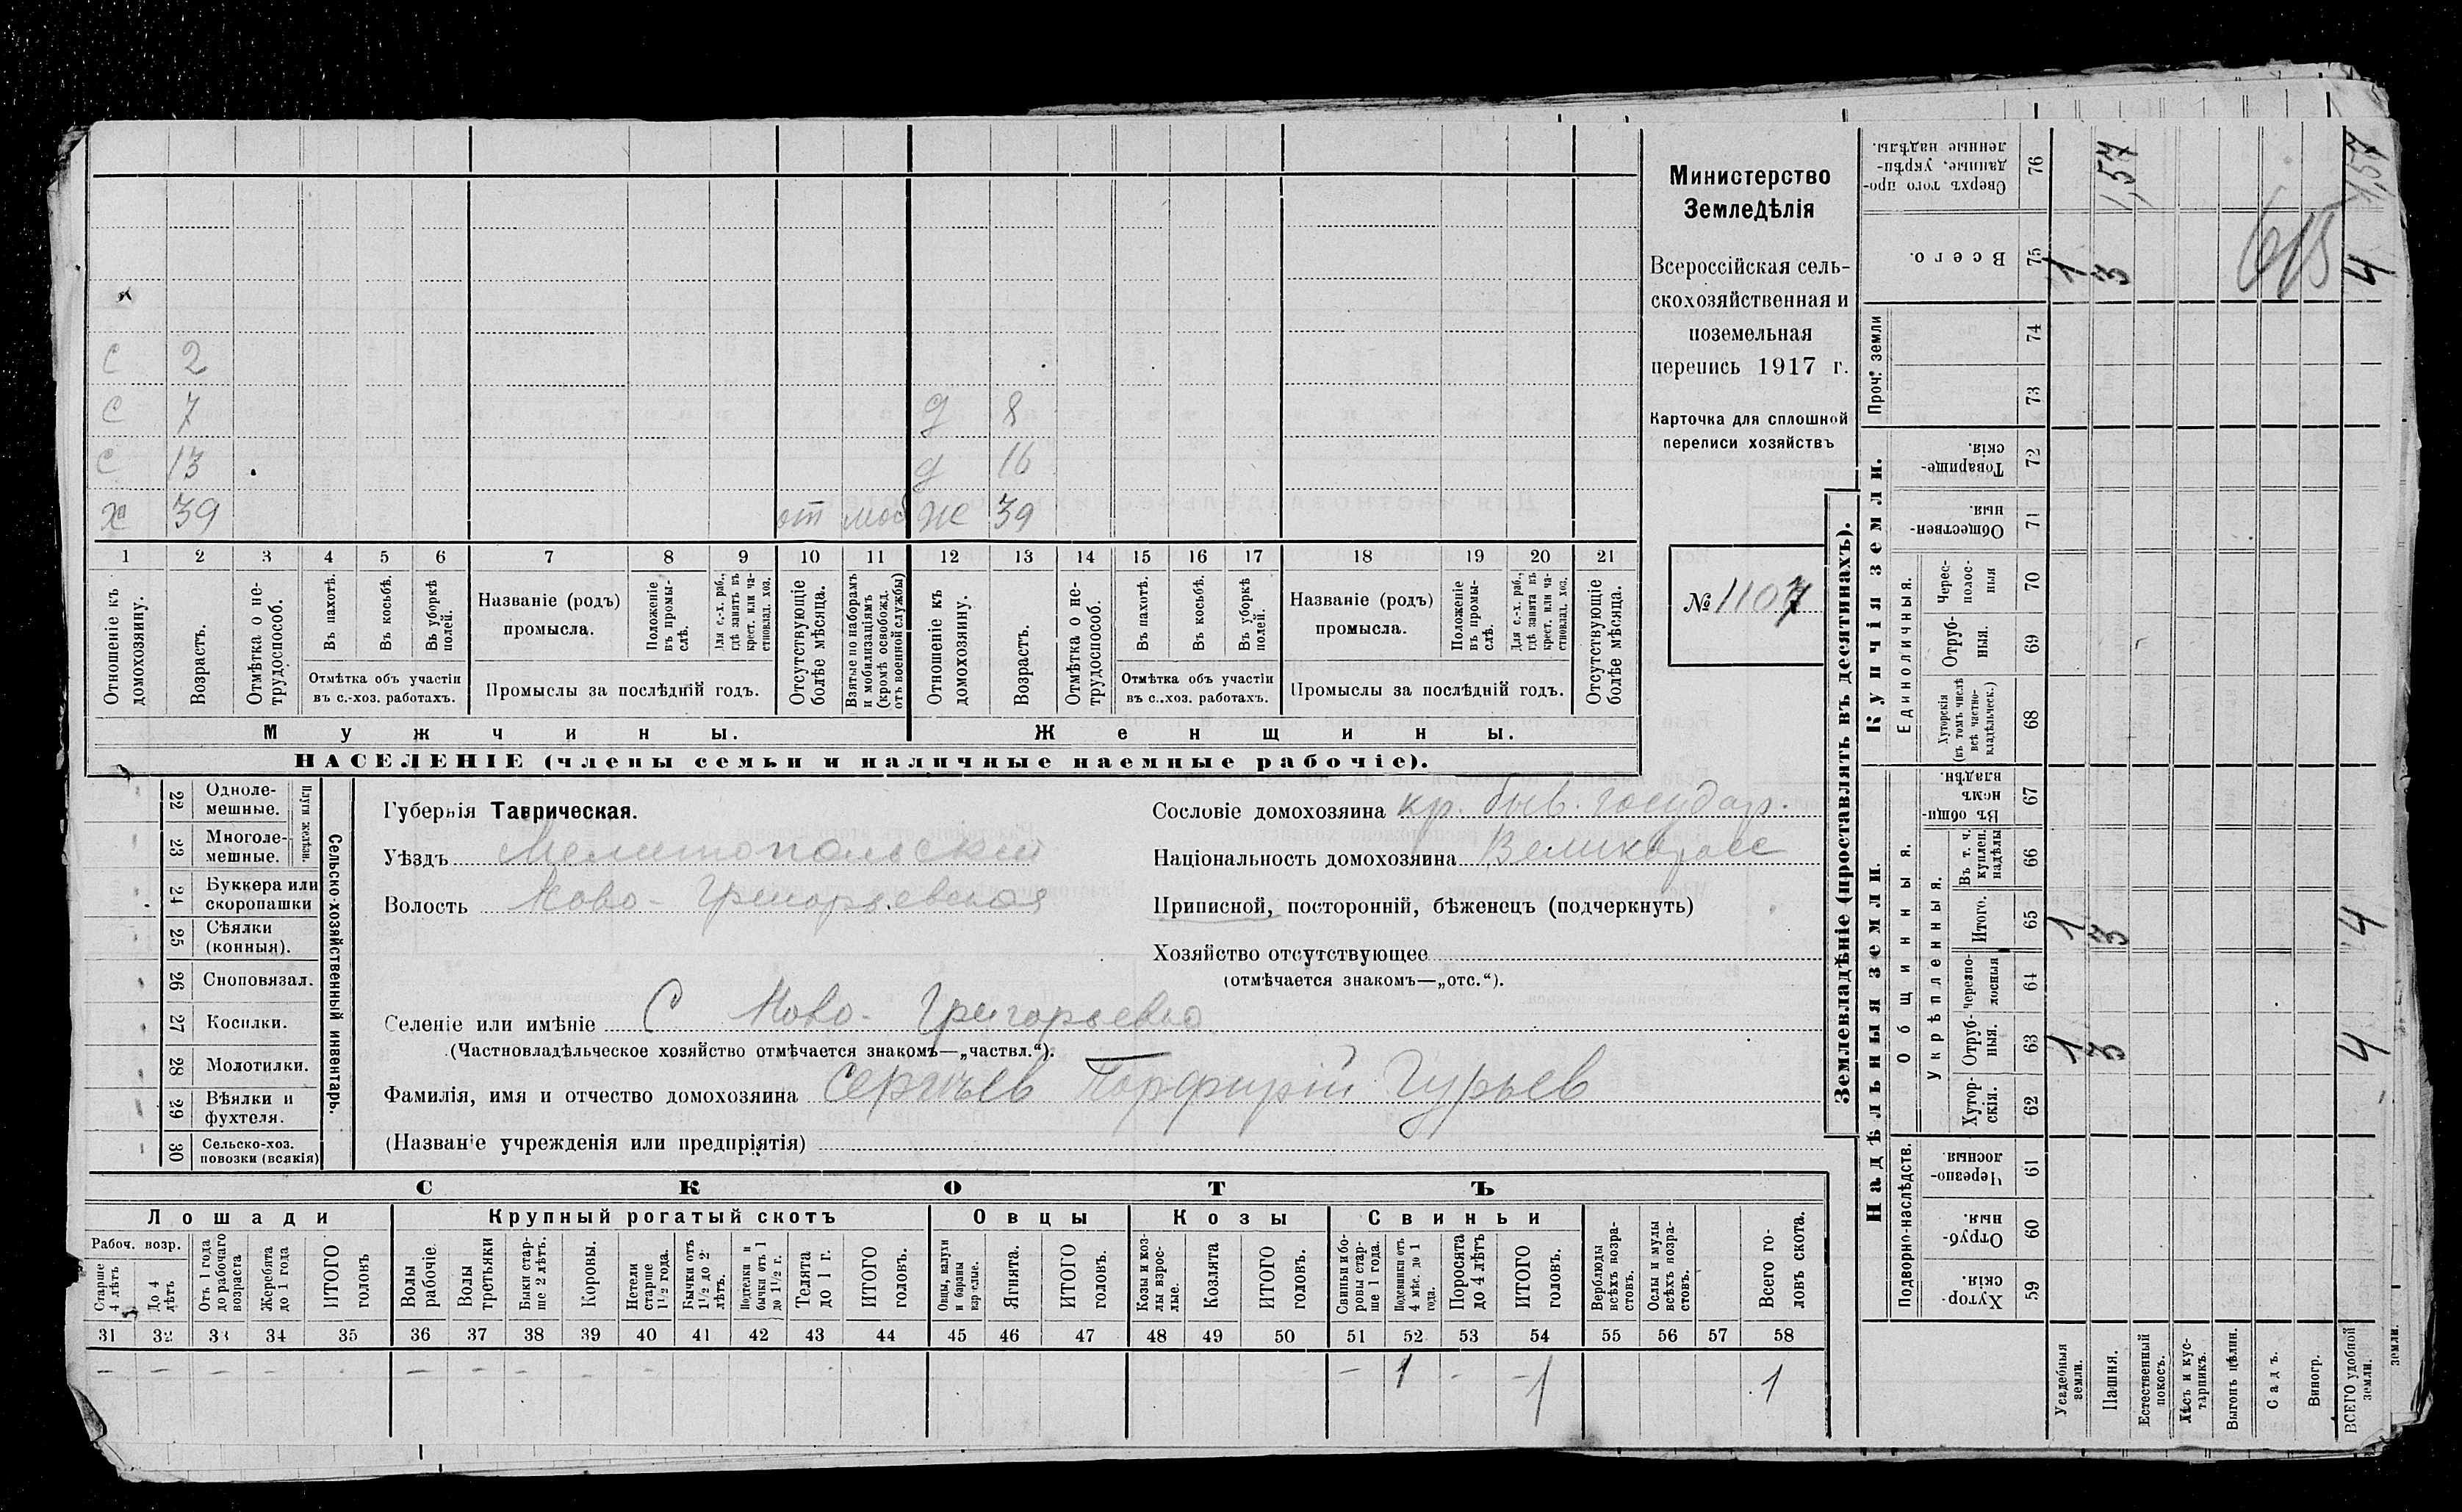 С 2
С 7 д 8
С 13 д 16
Х 39 от моб ж 39
1 2 3 4 5 6 7 8 9 10 11 12 13 14 15 16 17 18 19 20 21
Отношеніе къ домохозяину.
Возрастъ.
Отмѣтка о не-
трудоспособ.
Въ пахотѣ.
Въ косьбѣ.
Въ уборкѣ полей.
Отмѣтка объ участіи
въ с.-хоз. работахъ.
Названіе (родъ)
промысла.
Положеніе въ промы-
слѣ.
Для с.-х. раб.,
гдѣ занятъ въ
крест. или ча-
стновлад. хоз.
Промыслы за послѣдній годъ.
Отсутствующіе
болѣе мѣсяца.
Взятые по наборамъ
и мобилизаціямъ
(кромѣ освобожд.
отъ военной службы)
Отношеніе къ
домохозяину.
Возрастъ.
Отмѣтка о не-
трудоспособ.
Въ пахотѣ.
Въ косьбѣ.
Въ уборкѣ
полей.
Отмѣтка объ участіи
въ с.-хоз. работахъ.
Названіе (родъ)
промысла.
Положеніе
въ промы-
слѣ.
Для с.-х. раб.,
гдѣ занята въ
крест. или ча-
стновлад. хоз.
Промыслы за послѣдній годъ.
Отсутствующіе
болѣе мѣсяца.
Мужчины.
Женщины.
НАСЕЛЕНІЕ (члены семьи и наличные наемные рабочіе).
Министерство
Земледѣлія
Всероссійская сель-
скохозяйственная и
поземельная
перепись 1917 г.
Карточка для сплошной
переписи хозяйствъ
№ 1107
22 Одноле-
мешные.
23 Многоле-
мешные.
Плуги желѣзн.
24 Буккера или
скоропашки
25 Сѣялки
(конныя).
26 Сноповязал.
27 Косилки.
28 Молотилки.
29 Вѣялки и
фухтеля.
30 Сельско-хоз.
повозки (всякія)
Сельско-хозяйственный инвентарь.
Губернія Таврическая.
Уѣздъ Мелитопольский
Волость Ново-Григорьевская
Сословіе домохозяина кр. быв. государ.
Національность домохозяина Великоросс
Приписной, посторонній, бѣженецъ (подчеркнуть)
Хозяйство отсутствующее
(отмѣчается знакомъ—„отс.“).
Селеніе или имѣніе С Ново-Григорьевка
(Частновладѣльческое хозяйство отмѣчается знакомъ—„частвл.“).
Фамилія, имя и отчество домохозяина Сергѣев Порфирій Гурьев
(Названіе учрежденія или предпріятія)
СКОТЪ
Лошади
Крупный рогатый скотъ
Овцы
Козы
Свиньи
Рабоч. возр.
Старше
4 лѣтъ
До 4
лѣтъ
Отъ 1 года
до рабочаго
возраста
Жеребята
до 1 года
ИТОГО
головъ
Волы
рабочіе.
Волы
третьяки
Быки стар-
ше 2 лѣтъ.
Коровы.
Нетели
старше
1½ года.
Бычки отъ
1½ до 2
лѣтъ.
Подтелки и
бычки отъ 1
до 1½ г.
Телята
до 1 г.
ИТОГО
головъ.
Овцы, валухи
и бараны
взрослые.
Ягнята.
ИТОГО
головъ.
Козы и коз-
лы взрос-
лые.
Козлята
ИТОГО
головъ.
Свиньи и бо-
ровы стар-
ше 1 года.
Подсвинки отъ
4 мѣс. до 1
года.
Поросята
до 4 лѣтъ
ИТОГО
головъ.
Верблюды
всѣхъ возра-
стовъ.
Ослы и мулы
всѣхъ возра-
стовъ.
Всего го-
ловъ скота.
31 32 33 34 35 36 37 38 39 40 41 42 43 44 45 46 47 48 49 50 51 52 53 54 55 56 57 58
– – – – – – – – – – 1 – 1 1
Землевладѣніе (проставлять въ десятинахъ).
Надѣльныя земли.
Купчія земли.
Проч. земли
Подворно-наслѣдств.
Общинныя.
Укрѣпленныя.
Единоличныя.
Сверхъ того про-
данные, укрѣп-
ленные надѣлы.
76 1,57 1,57
Всего.
75 1 3 4
615
74
73
Товарище-
скія.
72
Обществен-
ныя.
71
Черес-
полос-
ныя
70
Отруб-
ныя.
69
Хуторскія
(въ томъ числѣ
всѣ частно-
владѣльческ.)
68
Въ общи-
номъ
владѣн.
67
Въ т. ч.
куплен.
надѣлы
66
Итого.
65 1 3 4
Черезпо-
лосныя
64
Отруб-
ныя.
63 1 3 4
Хутор-
скія.
62
Черезпо-
лосныя.
61
Отруб-
ныя.
60
Хутор-
скія.
59
Усадебныя
земли.
Пашня.
Естественный
покосъ.
Лѣсъ и кус-
тарникъ.
Выгонъ цѣлин.
Садъ.
Виногр.
ВСЕГО удобной
земли.
земли.